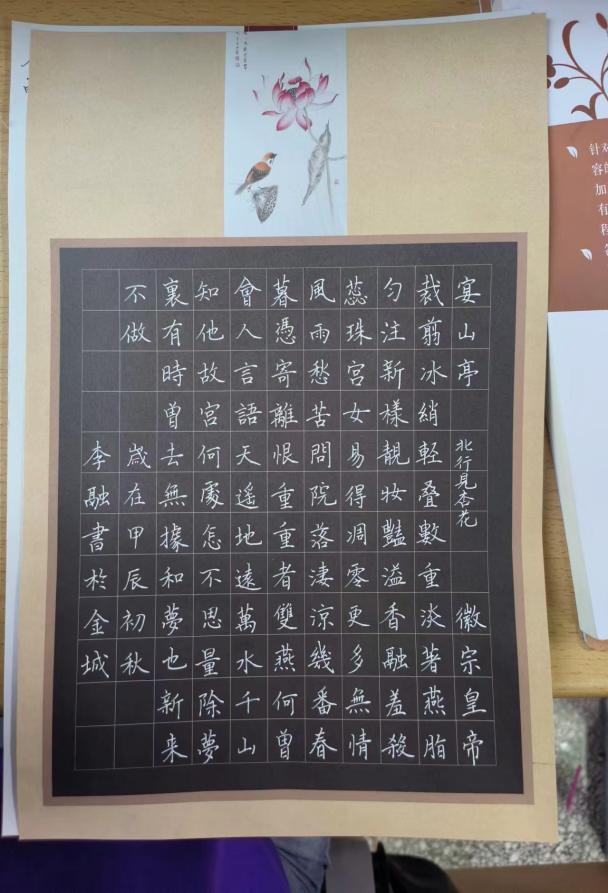 宴山亭 北行見杏花 徽宗皇帝
裁翦冰綃輕叠數重淡著燕脂
勻注新樣靚妝豔溢香融羞殺
蕊珠宮女易得凋零更多無情
風雨愁苦問院落淒涼幾番春
暮憑寄離恨重重者雙燕何曾
會人言語天遙地遠萬水千山
知他故宮何處怎不思量除夢
裏有時曾去無據和夢也新来
不做 歲在甲辰初秋
李融書於金城
针对
容的
加
有
程